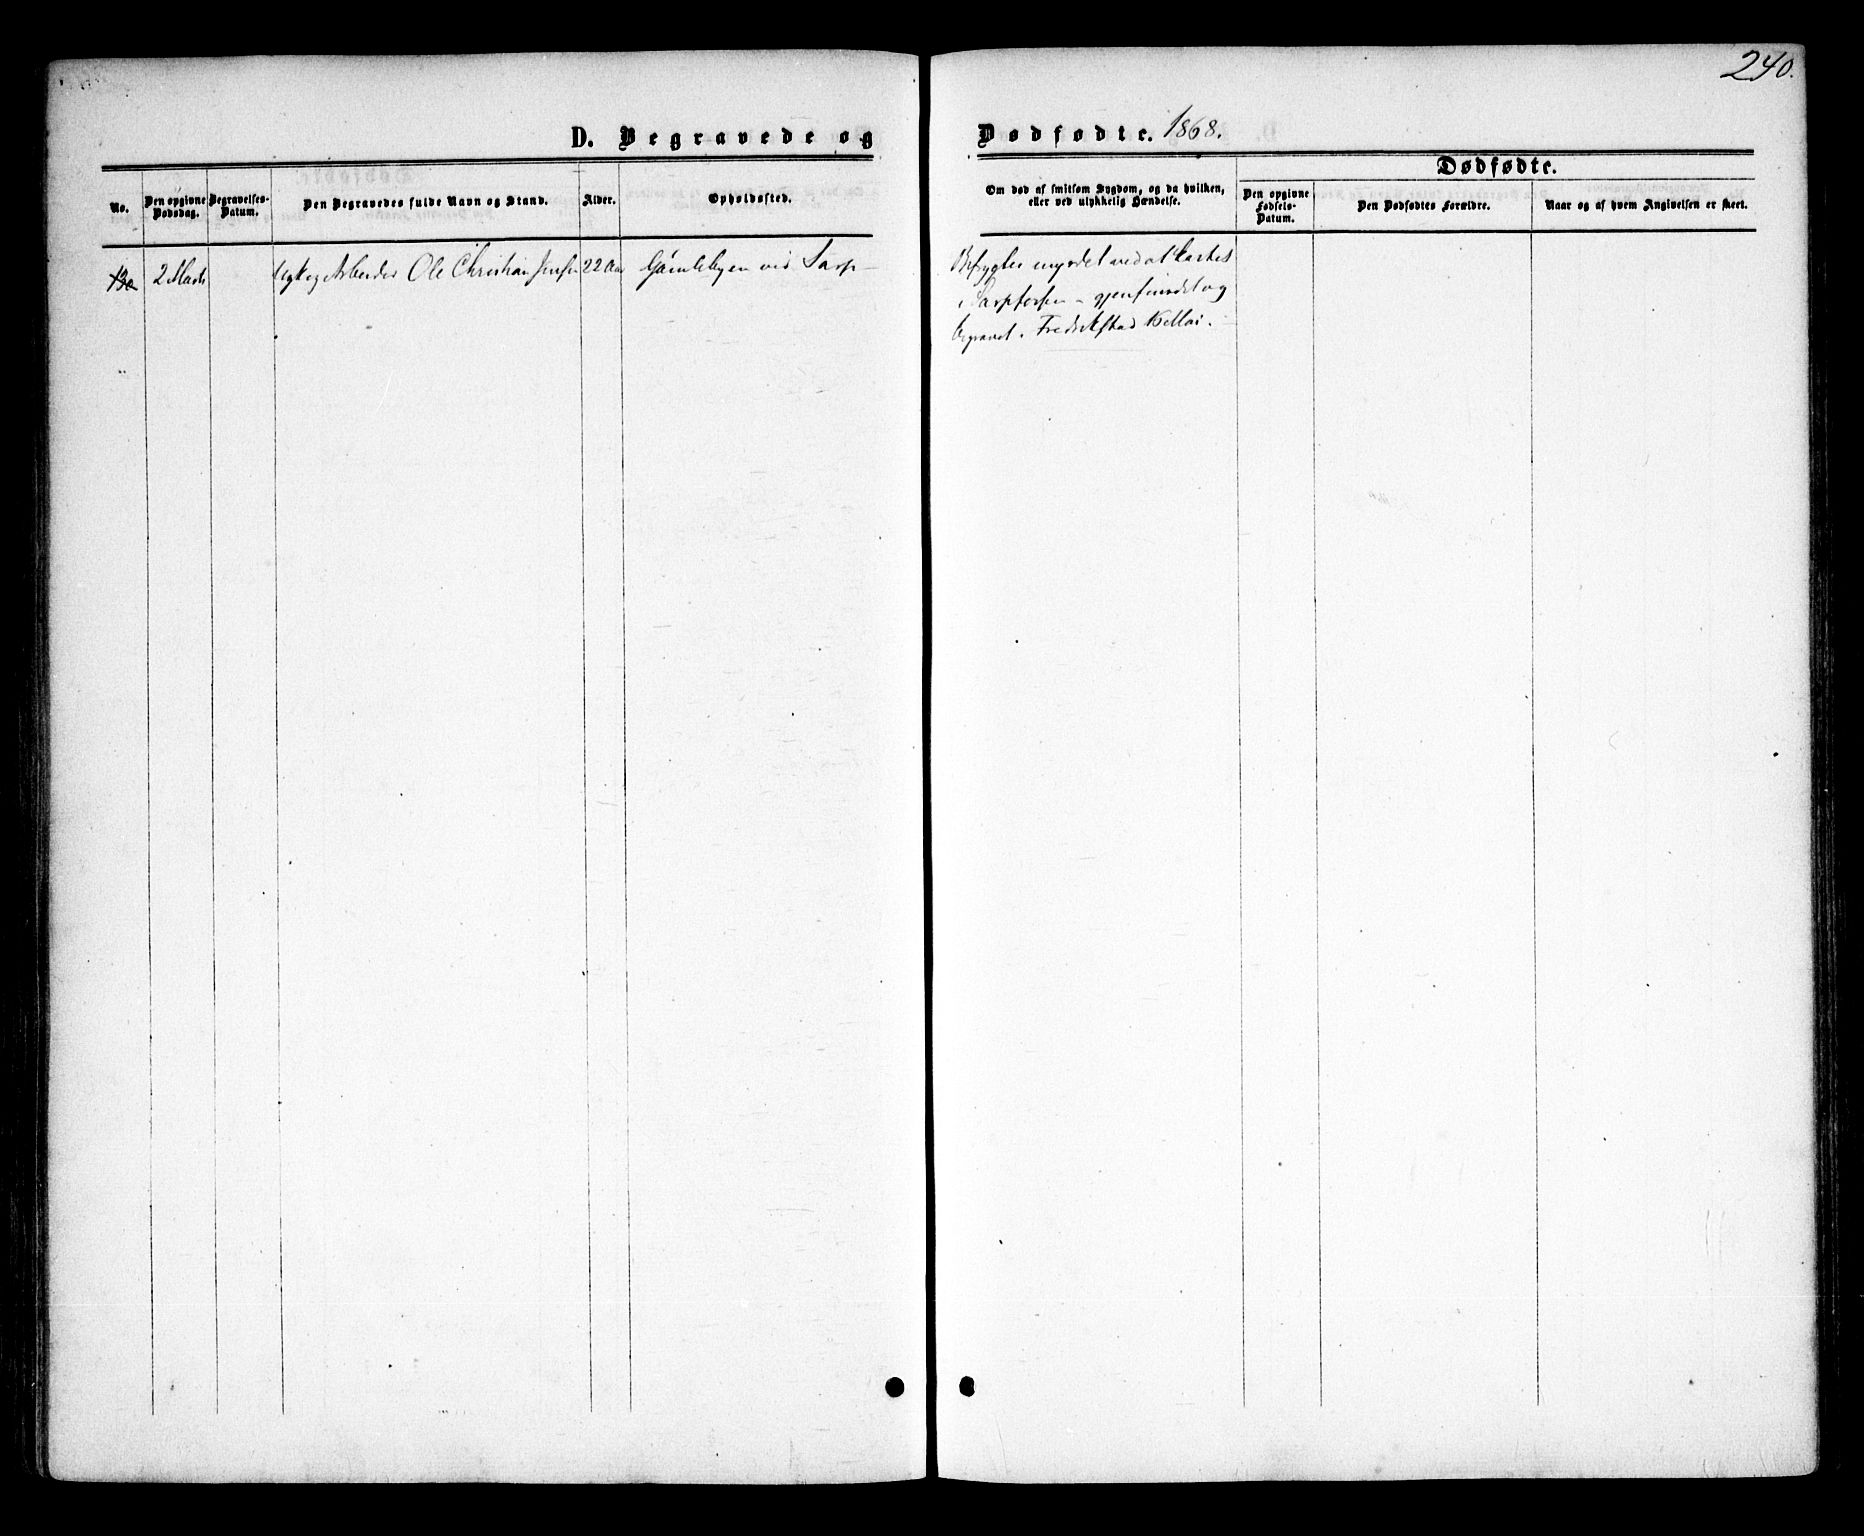 240.
D. Begravede og Dødfødte. 1868.
Dødfødte.
No.
Den opgivne Dødsdag.
Begravelses-Datum.
Den Begravedes fulde Navn og Stand.
Alder.
Opholdssted.
Om død af smitsom Sygdom, og da hvilken,
eller ved ulykkelig Hændelse.
Den opgivne Fødsels-Datum.
Den Dødfødtes Forældre.
Naar og af hvem Angivelsen er skeet.
2 Marts
Ole Christian Jensen
22 Aar
Gamlebyen ved Sarp-
Befrygtes myrdet ved at kastes
i Sarpfossen - gjenfundet og
begravet i Fredrikstad Mai.